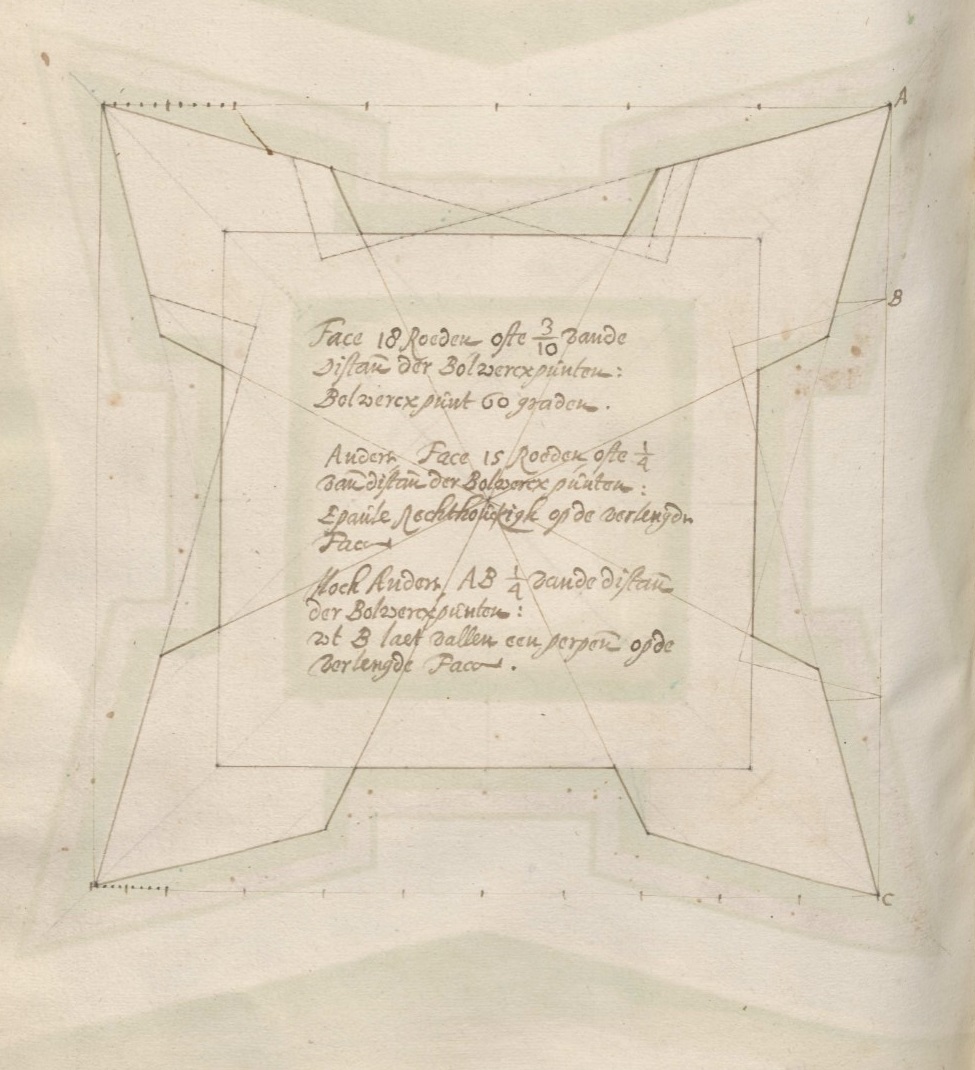 A
B
Face 18 Roeden ofte 3/10 vande
Distan̄ der Bolwercxpunten:
Bolwercxpunt 60 graden.
Anders Face 15 Roeden ofte 1/4
van distan̄ der Bolwercx punten:
Epaule Rechthouckigh op de verlengde
Face
Noch Anders, AB 1/4 vande distan̄
der Bolwercxpunten:
wt B laet vallen een perpen̄ op de
verlengde Face.
C